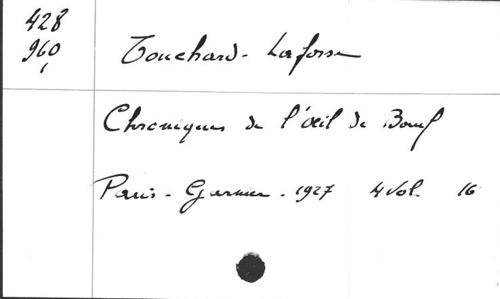 428
960
1
Touchard-Lafosse
Chroniques de l'Œil de Bœuf
Paris - Garnier - 1927 4 vol. 16